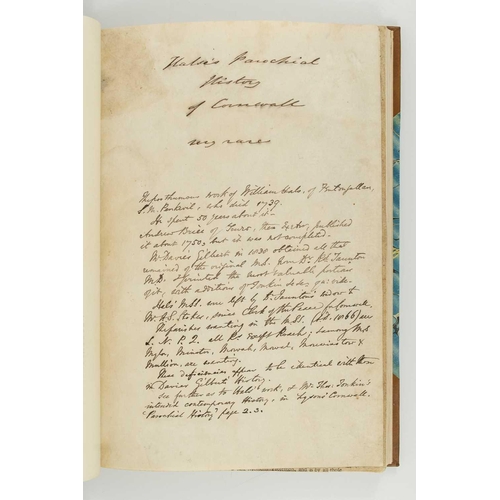 Hals's Parochial
History
of Cornwall
very rare
The posthumous work of William Hals, of Fenton gollan,
S. M. Penkevil, who died 1739.
He spent 50 years about it.
Andrew Brice of Truro, then Exeter, published
it about 1750, but it was not completed.
Mr Davies Gilbert in obtained all that
remained of the original Ms. from Dr Taunton
M.D. & printed the most valuable portions
of it, with additions of Tonkin &c.
Hals' MSS. were left by Dr Taunton's widow to
Mr. H.S. Stokes, Clerk of the Peace for Cornwall.
The parishes wanting in the MS. (Add. 1066) are
L. N. P. Q. all Rs except Roach;
Mylor, Minster, Morvah, Mawnan, Morwinstow &
Mullion, are wanting.
These deficiencies appear to be identical with those
in Davies Gilbert's History.
See further as to Hals' work, & Mr. Thos. Tonkin's
intended contemporary History, in Lysons' Cornwall.
"Parochial History" page 2.3.